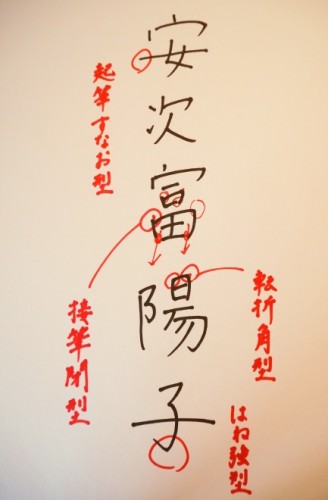 安次富陽子
起筆すなお型
転折角型
接筆閉型
はね強型